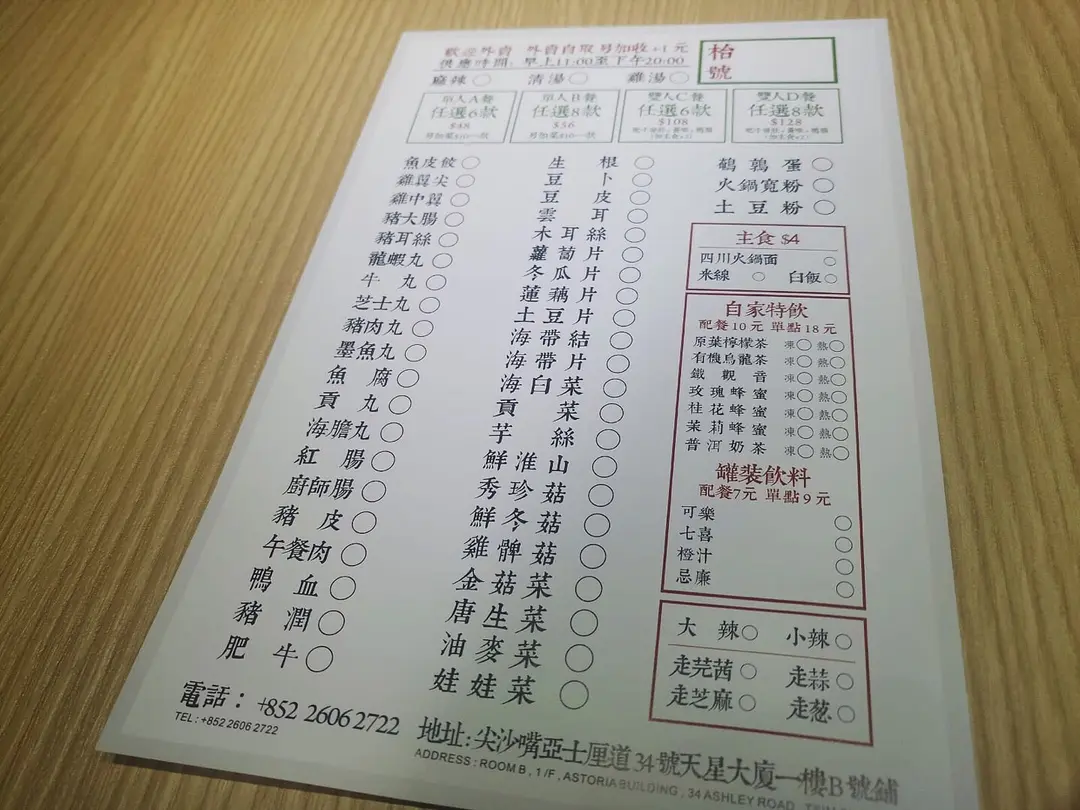 歡迎外賣 外賣自取另加收+1元
供應時間: 早上11:00至下午20:00
枱號
麻辣 清湯 雞湯
單人A餐
任選6款
$48
單人B餐
任選8款
$56
雙人C餐
任選6款
$108
雙人D餐
任選8款
$128
魚皮餃
雞翼尖
雞中翼
豬大腸
豬耳絲
龍蝦丸
牛丸
芝士丸
豬肉丸
墨魚丸
魚腐
貢丸
海膽丸
紅腸
廚師腸
豬皮
午餐肉
鴨血
豬潤
肥牛
生根
豆卜
豆皮
雲耳
木耳絲
蘿蔔片
冬瓜片
蓮藕片
土豆片
海帶結
海帶片
海白菜
貢菜
芋絲
鮮淮山
秀珍菇
鮮冬菇
雞髀菇
金菇菜
唐生菜
油麥菜
娃娃菜
鵪鶉蛋
火鍋寬粉
土豆粉
主食 $4
四川火鍋面
米線 白飯
自家特飲
配餐10元 單點18元
原葉檸檬茶 凍 熱
有機烏龍茶 凍 熱
鐵觀音 凍 熱
玫瑰蜂蜜 凍 熱
桂花蜂蜜 凍 熱
茉莉蜂蜜 凍 熱
普洱奶茶 凍 熱
罐裝飲料
配餐7元 單點9元
可樂
七喜
橙汁
忌廉
大辣 小辣
走芫茜 走蒜
走芝麻 走葱
電話：+852 2606 2722
TEL : +852 2606 2722
地址: 尖沙嘴亞士厘道34號天星大廈一樓B號鋪
ADDRESS : ROOM B , 1/F , ASTORIA BUILDING , 34 ASHLEY ROAD